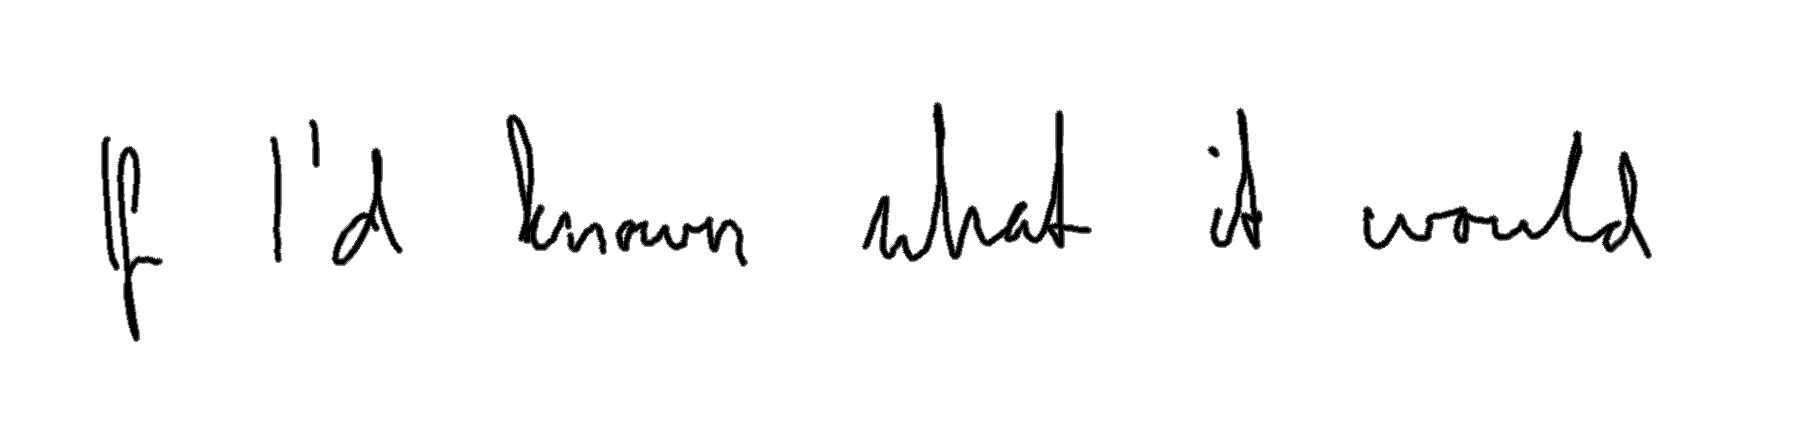 If I'd known what it would